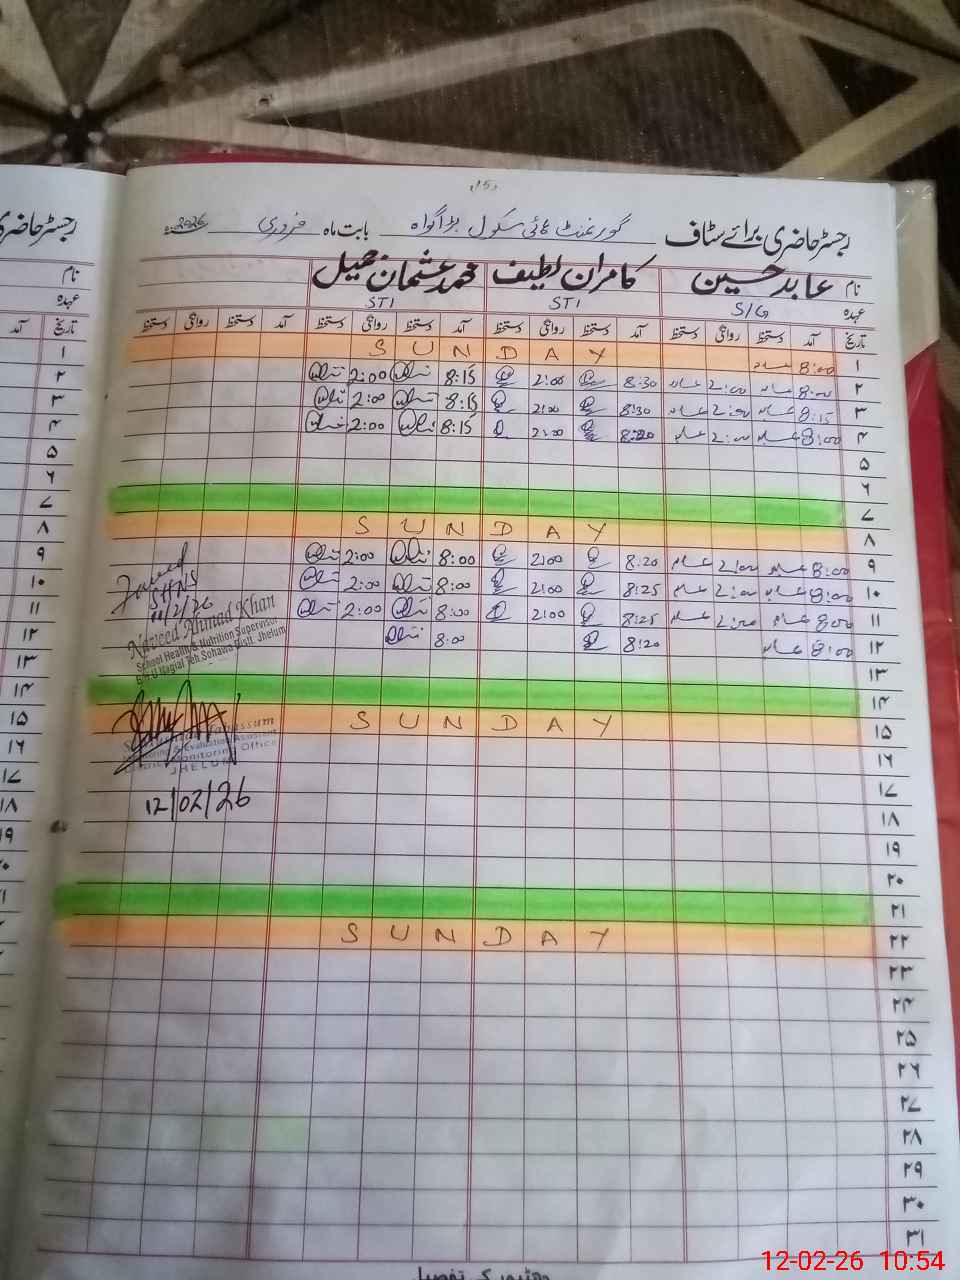 15
رجسٹر حاضری برائے سٹاف گورنمنٹ ہائی سکول بڑاگواہ بابت ماہ فروری 2026ء
رجسٹر حاضری
نام عابد حسین کامران لطیف محمد عثمان جمیل
عہدہ S/G STI STI
تاریخ آمد دستخط روانگی دستخط آمد دستخط روانگی دستخط آمد دستخط روانگی دستخط آمد دستخط روانگی دستخط
نام
عہدہ
تاریخ آمد
۱ 8:00 عابد SUNDAY
۲ 8:00 عابد 2:00 عابد 8:30 2:00 8:15 2:00
۳ 8:15 عابد 2:00 عابد 8:30 2:00 8:15 2:00
۴ 8:00 عابد 2:00 عابد 8:20 2:00 8:15 2:00
۵
۶
۷
۸ SUNDAY
۹ 8:00 عابد 2:00 عابد 8:20 2:00 8:00 2:00
۱۰ 8:00 عابد 2:00 عابد 8:25 2:00 8:00 2:00
۱۱ 8:00 عابد 2:00 عابد 8:25 2:00 8:00 2:00
۱۲ 8:00 عابد 8:20 8:00
SHNS
11/2/26
Naseed Ahmad Khan
School Health & Nutrition Supervisor
BHU Nagial Teh.Sohawa Distt. Jhelum
۱۳
۱۴
۱۵ SUNDAY
Monitoring & Evaluation Assistant
District Monitoring Office
JHELUM
12/02/26
۱۶
۱۷
۱۸
۱۹
۲۰
۲۱
۲۲ SUNDAY
۲۳
۲۴
۲۵
۲۶
۲۷
۲۸
۲۹
۳۰
۳۱
12-02-26 10:54